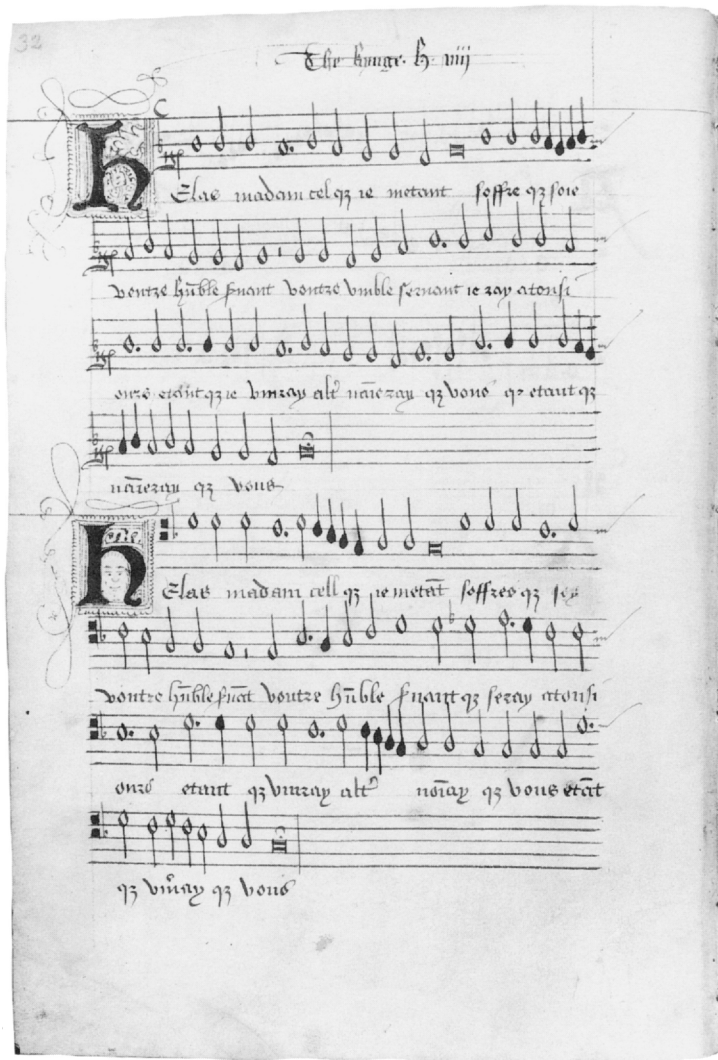 32
The kynge. h. viij
C
hElas madam cel qz ie metant soffre qz soie
vontre hūble s̄uant vontre vmble seruant ie ray a tousi
ours etant qz ie viuray alt' qz vous qz etant qz
qz vous
hElas madam cell qz ie metāt soffres qz sey
vontre hūble s̄uāt vontre hūble s̄uant qz seray a tousi
ours etant qz viuray alt' qz vous etāt
qz qz vous